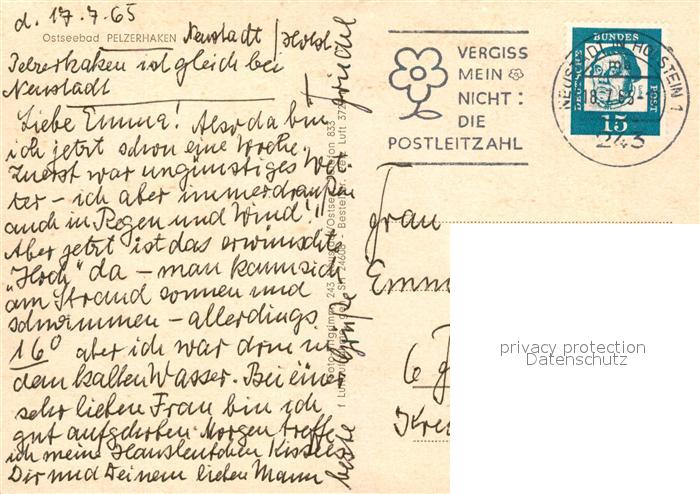 d. 17.7.65
Ostseebad PELZERHAKEN
Neustadt / Holst
Pelzerhaken ist gleich bei
Neustadt
Liebe Emma! Also da bin
ich jetzt schon eine Woche.
Zuerst war ungünstiges Wet-
ter – ich aber immer draußen
auch in Regen und Wind!
Aber jetzt ist das erwünschte
"Hoch" da – man kann sich
am Strand sonnen und
schwimmen – allerdings
16° aber ich war drin in
dem kalten Wasser. Bei einer
sehr lieben Frau bin ich
gut aufgehoben. Morgen treffe
ich meine Hausleutchen
Dir und Deinem lieben Mann
beste Grüße
VERGISS
MEIN
NICHT:
DIE
POSTLEITZAHL
DEUTSCHE
BUNDES
POST
15
NEUSTADT IN HOLSTEIN 1
243
Frau
Emm
6 F
Kre
privacy protection
Datenschutz